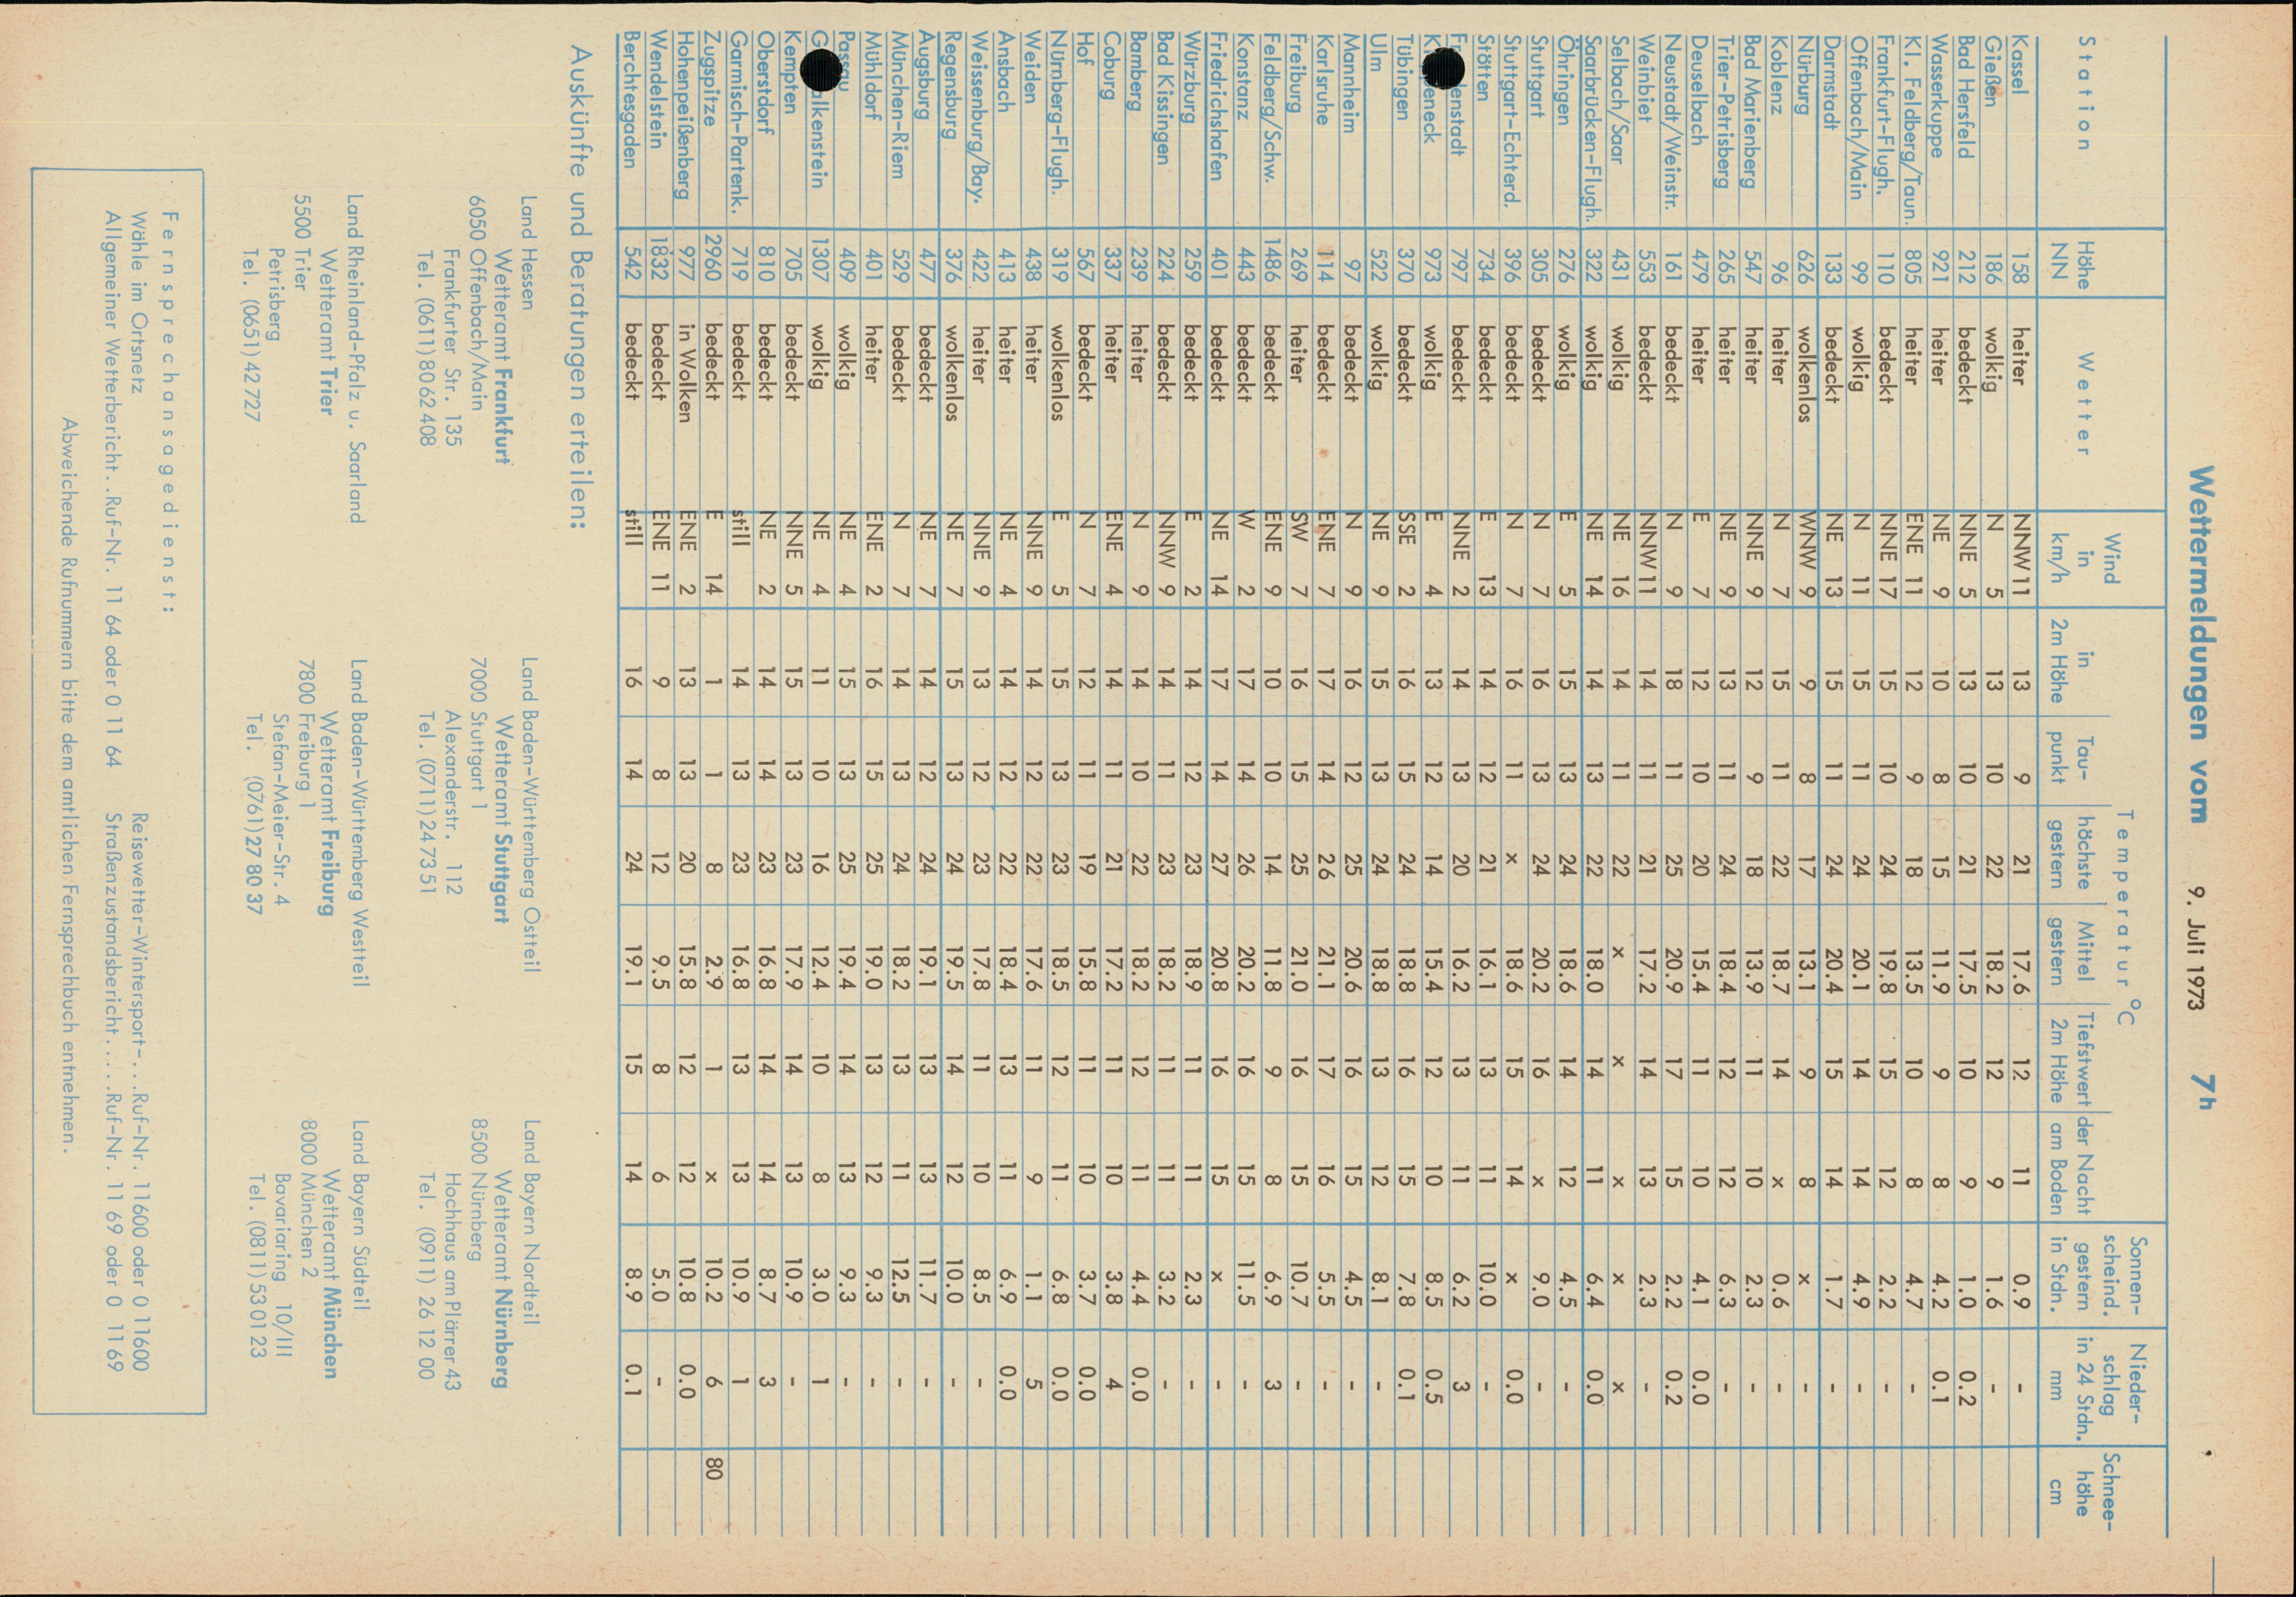 Wettermeldungen vom 9. Juli 1973 7h
Station Höhe NN Wetter Wind in km/h Temperatur °C in 2m Höhe Tau-punkt höchste gestern Mittel gestern Tiefstwert der Nacht 2m Höhe am Boden Sonnen-scheind. gestern in Stdn. Nieder-schlag in 24 Stdn. mm Schnee-höhe cm
Kassel 158 heiter NNW 11 13 9 21 17.6 12 11 0.9 -
Gießen 186 wolkig N 5 13 10 22 18.2 12 9 1.6 -
Bad Hersfeld 212 bedeckt NNE 5 13 10 21 17.5 10 9 1.0 0.2
Wasserkuppe 921 heiter NE 9 10 8 15 11.9 9 8 4.2 0.1
Kl. Feldberg/Taun. 805 heiter ENE 11 12 9 18 13.5 10 8 4.7 -
Frankfurt-Flugh. 110 bedeckt NNE 17 15 10 24 19.8 15 12 2.2 -
Offenbach/Main 99 wolkig N 11 15 11 24 20.1 14 14 4.9 -
Darmstadt 133 bedeckt NE 13 15 11 24 20.4 15 14 1.7 -
Nürburg 626 wolkenlos WNW 9 9 8 17 13.1 9 8 x -
Koblenz 96 heiter N 7 15 11 22 18.7 14 x 0.6 -
Bad Marienberg 547 heiter NNE 9 12 9 18 13.9 11 10 2.3 -
Trier-Petrisberg 265 heiter NE 9 13 11 24 18.4 12 12 6.3 -
Deuselbach 479 heiter E 7 12 10 20 15.4 11 10 4.1 0.0
Neustadt/Weinstr. 161 bedeckt N 9 18 11 25 20.9 17 15 2.2 0.2
Weinbiet 553 bedeckt NNW 11 14 11 21 17.2 14 13 2.3 -
Selbach/Saar 431 wolkig NE 16 14 11 22 x x x x x
Saarbrücken-Flugh. 322 wolkig NE 14 14 13 22 18.0 14 11 6.4 0.0
Öhringen 276 wolkig E 5 15 13 24 18.6 14 12 4.5 -
Stuttgart 305 bedeckt N 7 16 13 24 20.2 16 x 9.0 -
Stuttgart-Echterd. 396 bedeckt N 7 16 11 x 18.6 15 14 x 0.0
Stötten 734 bedeckt E 13 14 12 21 16.1 13 11 10.0 -
Freudenstadt 797 bedeckt NNE 2 14 13 20 16.2 13 11 6.2 3
Klippeneck 973 wolkig E 4 13 12 14 15.4 12 10 8.5 0.5
Tübingen 370 bedeckt SSE 2 16 15 24 18.8 16 15 7.8 0.1
Ulm 522 wolkig NE 9 15 13 24 18.8 13 12 8.1 -
Mannheim 97 bedeckt N 9 16 12 25 20.6 16 15 4.5 -
Karlsruhe 114 bedeckt ENE 7 17 14 26 21.1 17 16 5.5 -
Freiburg 269 heiter SW 7 16 15 25 21.0 16 15 10.7 -
Feldberg/Schw. 1486 bedeckt ENE 9 10 10 14 11.8 9 8 6.9 3
Konstanz 443 bedeckt W 2 17 14 26 20.2 16 15 11.5 -
Friedrichshafen 401 bedeckt NE 14 17 14 27 20.8 16 15 x -
Würzburg 259 bedeckt E 2 14 12 23 18.9 11 11 2.3 -
Bad Kissingen 224 bedeckt NNW 9 14 11 23 18.2 11 11 3.2 -
Bamberg 239 heiter N 9 14 10 22 18.2 12 11 4.4 0.0
Coburg 337 heiter ENE 4 14 11 21 17.2 11 10 3.8 4
Hof 567 bedeckt N 7 12 11 19 15.8 11 10 3.7 0.0
Nürnberg-Flugh. 319 wolkenlos E 5 15 13 23 18.5 12 11 6.8 0.0
Weiden 438 heiter NNE 9 14 12 22 17.6 11 9 1.1 5
Ansbach 413 heiter NE 4 14 12 22 18.4 13 11 6.9 0.0
Weissenburg/Bay. 422 heiter NNE 9 13 12 23 17.8 11 10 8.5 -
Regensburg 376 wolkenlos NE 7 15 13 24 19.5 14 12 10.0 -
Augsburg 477 bedeckt NE 7 14 12 24 19.1 13 13 11.7 -
München-Riem 529 bedeckt N 7 14 13 24 18.2 13 11 12.5 -
Mühldorf 401 heiter ENE 2 16 15 25 19.0 13 12 9.3 -
Passau 409 wolkig NE 4 15 13 25 19.4 14 13 9.3 -
1307 wolkig NE 4 11 10 16 12.4 10 8 3.0 1
Kempten 705 bedeckt NNE 5 15 13 23 17.9 14 13 10.9 -
Oberstdorf 810 bedeckt NE 2 14 14 23 16.8 14 14 8.7 3
Garmisch-Partenk. 719 bedeckt still 14 13 23 16.8 13 13 10.9 1
Zugspitze 2960 bedeckt E 14 1 1 8 2.9 1 x 10.2 6 80
Hohenpeißenberg 977 in Wolken ENE 2 13 13 20 15.8 12 12 10.8 0.0
Wendelstein 1832 bedeckt ENE 11 9 8 12 9.5 8 6 5.0 -
Berchtesgaden 542 bedeckt still 16 14 24 19.1 15 14 8.9 0.1
Auskünfte und Beratungen erteilen:
Land Hessen
Wetteramt Frankfurt
6050 Offenbach/Main
Frankfurter Str. 135
Tel. (0611) 80 62 408
Land Baden-Württemberg Ostteil
Wetteramt Stuttgart
7000 Stuttgart 1
Alexanderstr. 112
Tel. (0711) 24 73 51
Land Bayern Nordteil
Wetteramt Nürnberg
8500 Nürnberg
Hochhaus am Plärrer 43
Tel. (0911) 26 12 00
Land Rheinland-Pfalz u. Saarland
Wetteramt Trier
5500 Trier
Petrisberg
Tel. (0651) 42 727
Land Baden-Württemberg Westteil
Wetteramt Freiburg
7800 Freiburg 1
Stefan-Meier-Str. 4
Tel. (0761) 27 80 37
Land Bayern Südteil
Wetteramt München
8000 München 2
Bavariaring 10/III
Tel. (0811) 53 01 23
Fernsprechansagedienst:
Wähle im Ortsnetz Reisewetter-Wintersport-...Ruf-Nr. 11600 oder 0 11600
Allgemeiner Wetterbericht..Ruf-Nr. 11 64 oder 0 11 64 Straßenzustandsbericht.....Ruf-Nr. 11 69 oder 0 11 69
Abweichende Rufnummern bitte dem amtlichen Fernsprechbuch entnehmen.